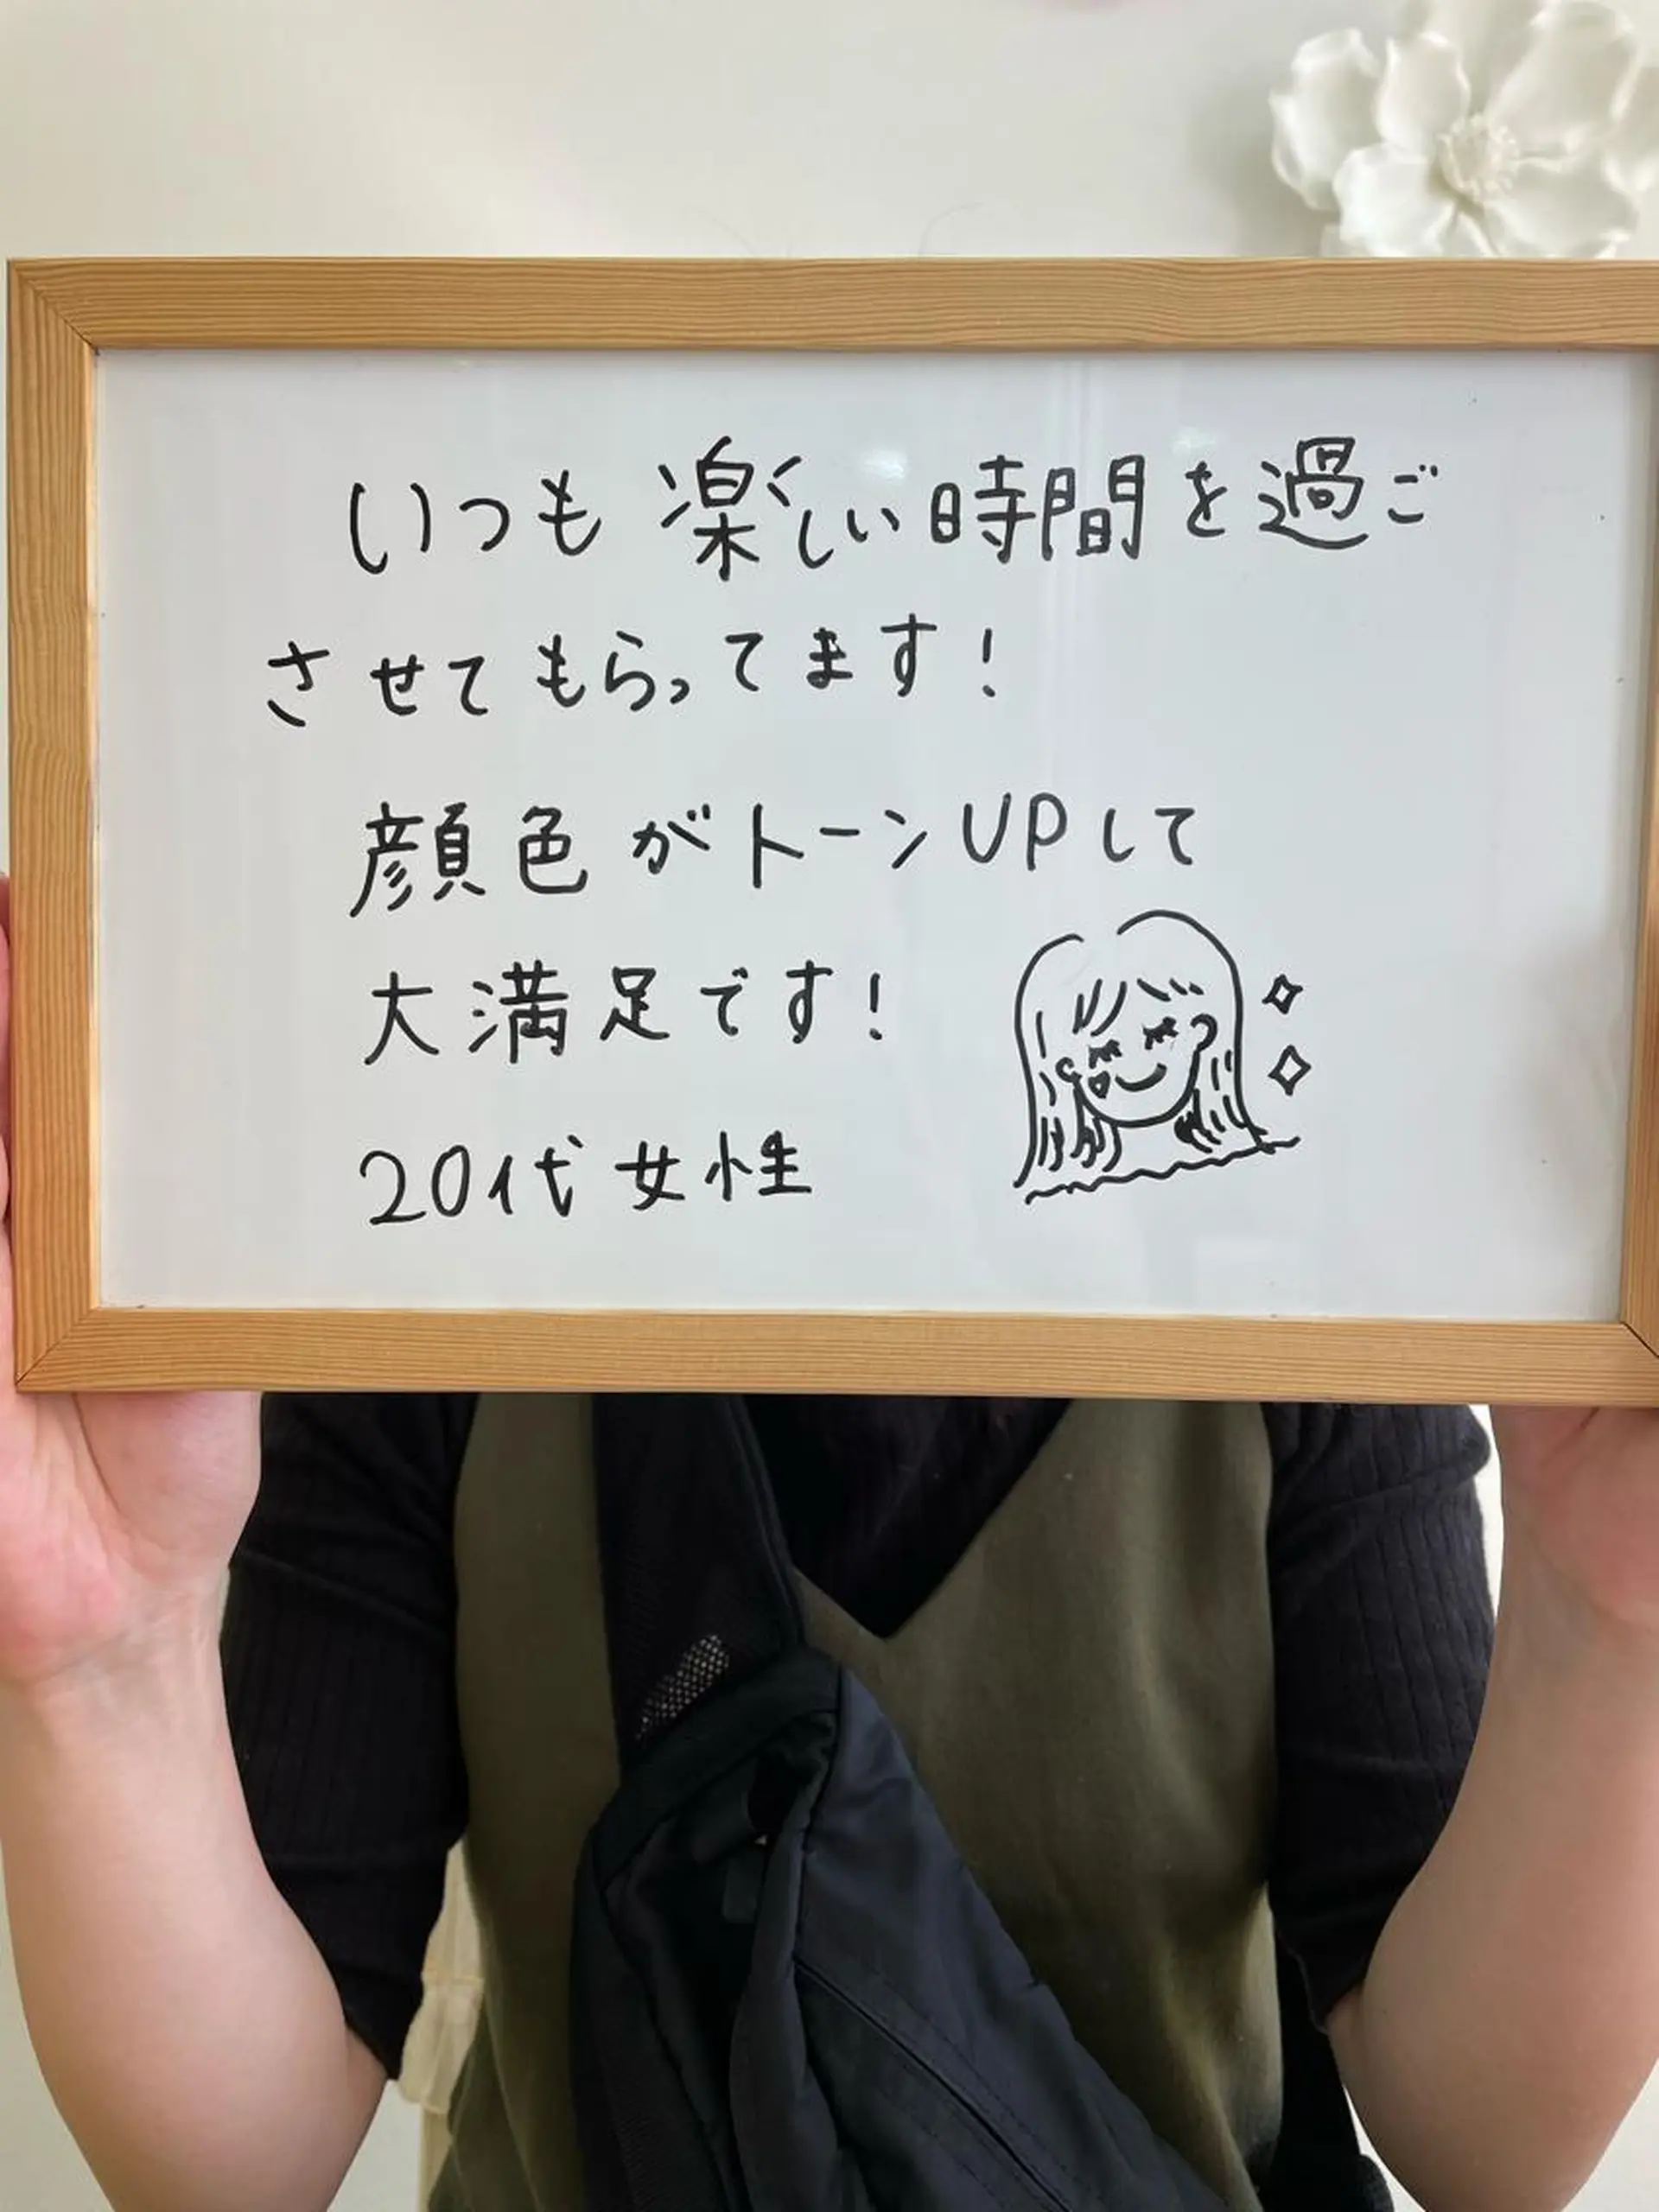 いつも楽しい時間を過ご
させてもらってます！
顔色がトーンUPして
大満足です！
20代女性